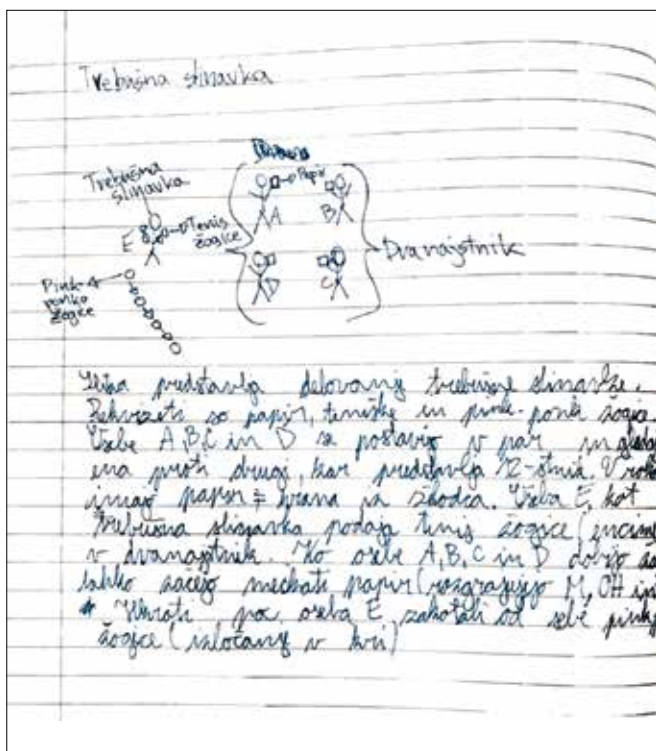 Trebušna slinavka
Hrana
Papir
Trebušna
slinavka
A
B
E
Tenis
žogice
Dvanajstnik
D
C
Pink
ponk
žogice
predstavlja delovanje trebušne slinavke.
Rekviziti so papir, teniške in pink-ponk žogice.
Osebe A, B, C in D se postavijo v par in gledajo
ena proti drugi, kar predstavlja 12-stnik. V roki
imajo papir = hrana iz želodca. Oseba E, kot
trebušna slinavka podaja tenis žogice (encime
v dvanajstnik. Ko osebe A, B, C in D dobijo
lahko začejo mečkati papir (razgrajujejo M, OH in
Hkrati pa oseba E zakotali od sebe pink
žogice (izločanje v kri)